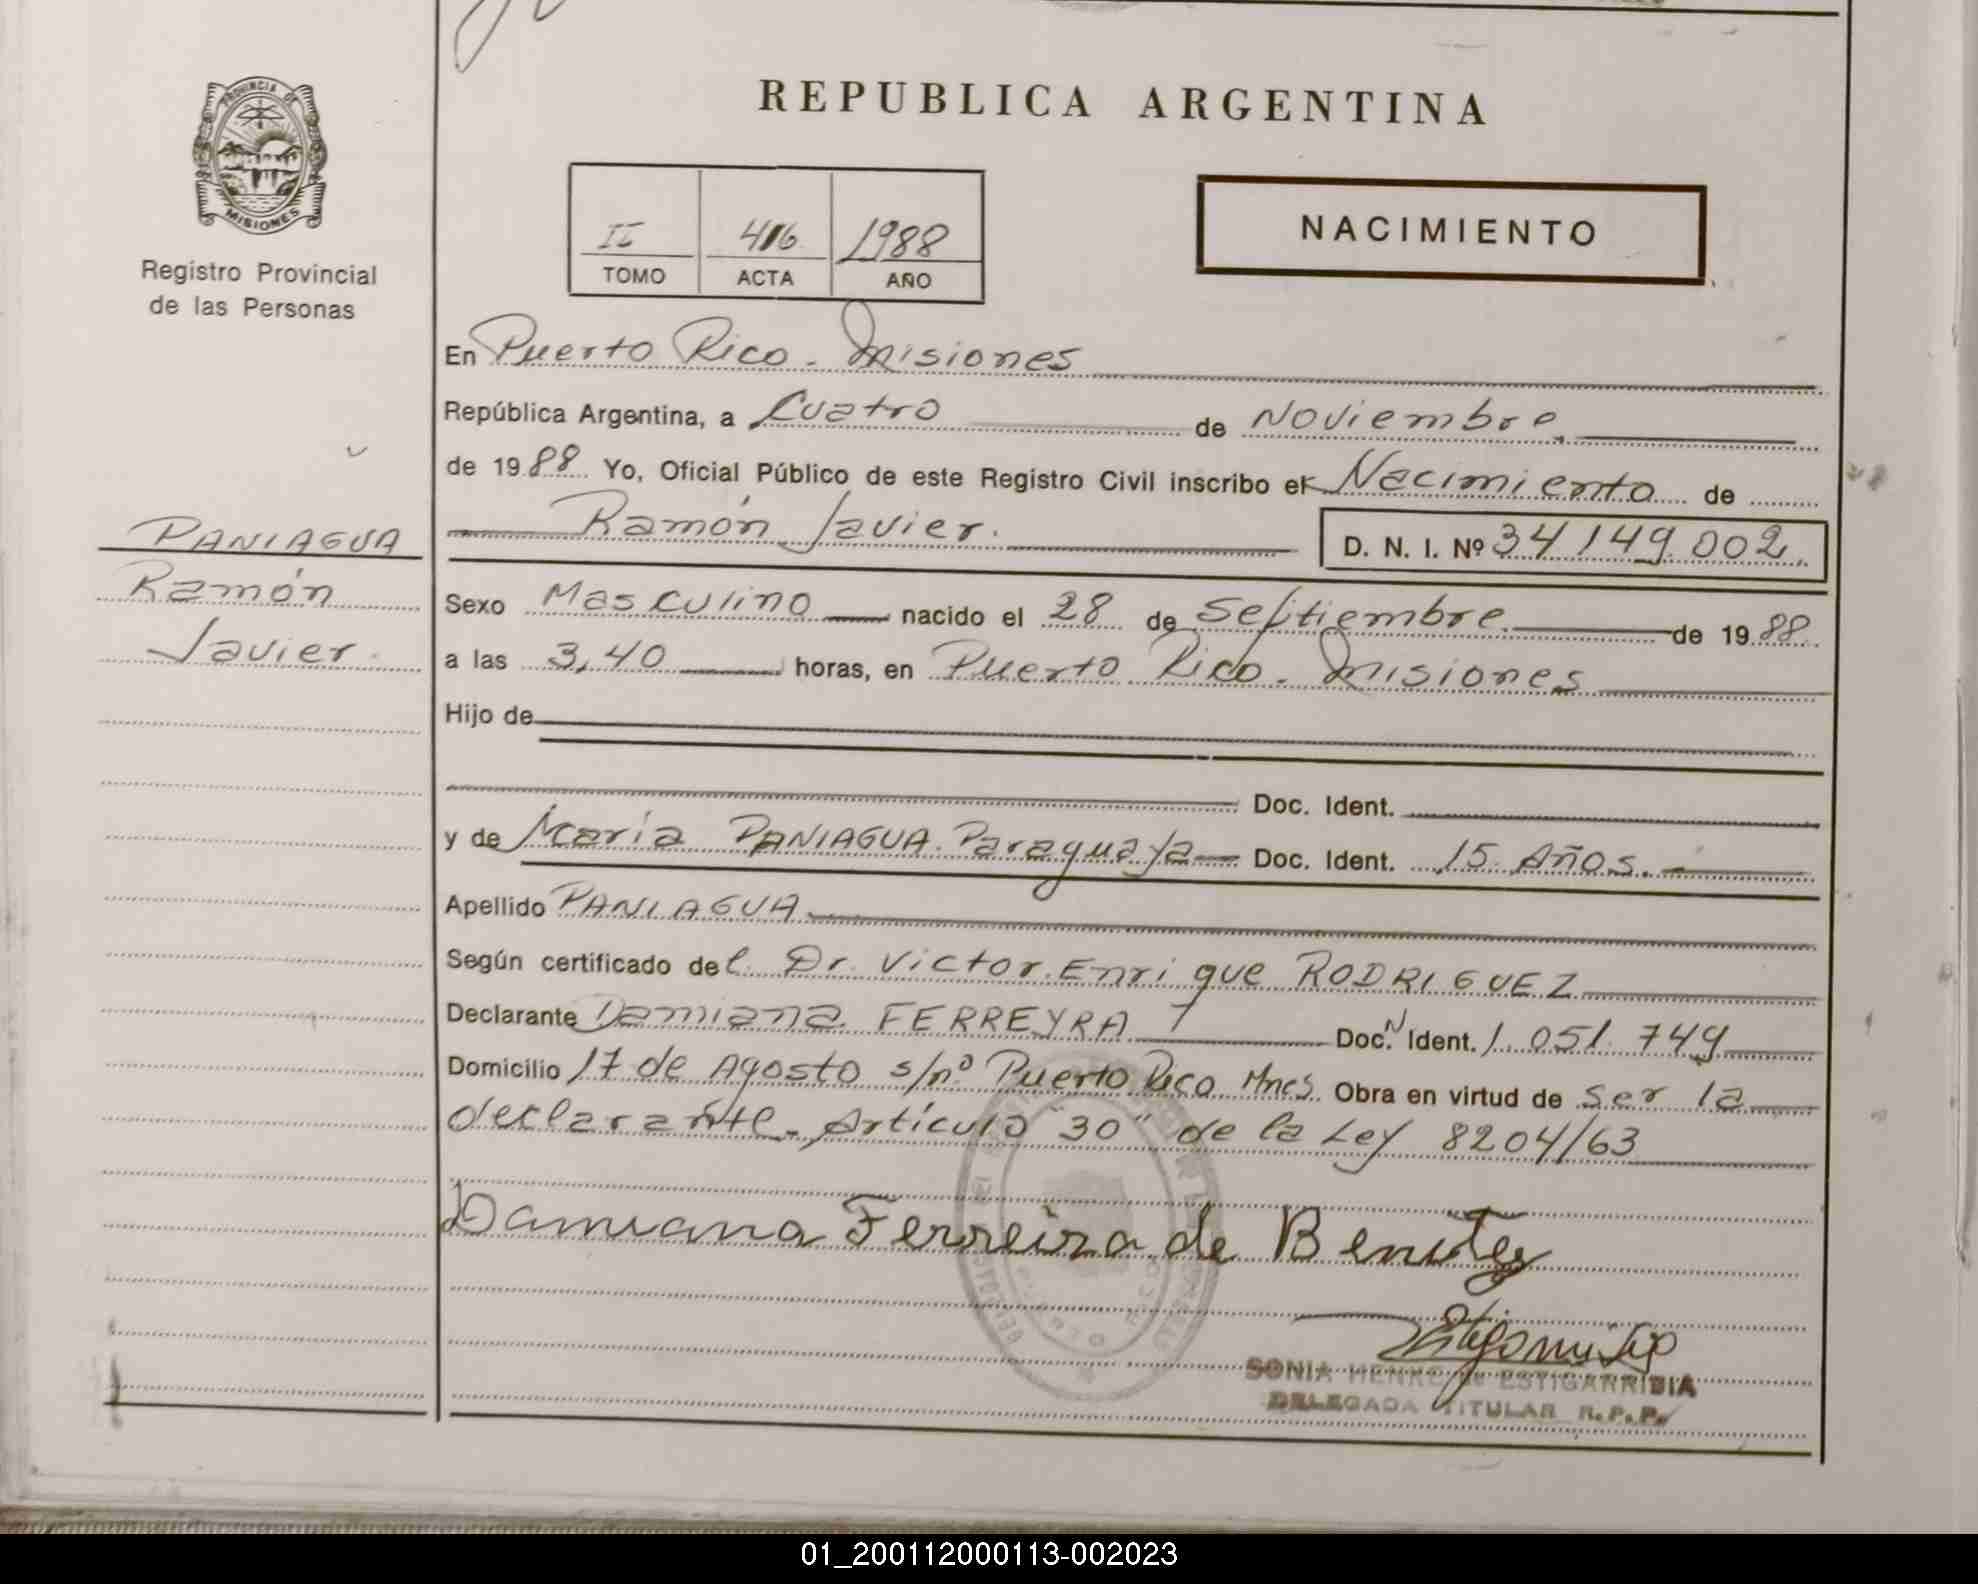 PROVINCIA DE
MISIONES
Registro Provincial
de las Personas
PANIAGUA
Ramón
Javier.
REPUBLICA ARGENTINA
II 416 1988
TOMO ACTA AÑO
NACIMIENTO
En Puerto Rico - Misiones
República Argentina, a Cuatro de Noviembre
de 1988 Yo, Oficial Público de este Registro Civil inscribo el Nacimiento de
Ramón Javier. D. N. I. Nº 34149.002.
Sexo Masculino nacido el 28 de Septiembre de 1988.
a las 3,40 horas, en Puerto Rico - Misiones
Hijo de
Doc. Ident.
y de María PANIAGUA. Paraguaya Doc. Ident. 15 Años.-
Apellido PANIAGUA
Según certificado del Dr. Victor Enrique RODRIGUEZ
Declarante Damiana FERREYRA Doc. Ident. 1.051.749
Domicilio 17 de Agosto s/nº Puerto Rico Mnes. Obra en virtud de ser la
declarante - Artículo "30" de la Ley 8204/63
Damiana Ferreira de Benitez
SONIA HENKE de ESTIGARRIBIA
DELEGADA TITULAR R.P.P.
01_200112000113-002023